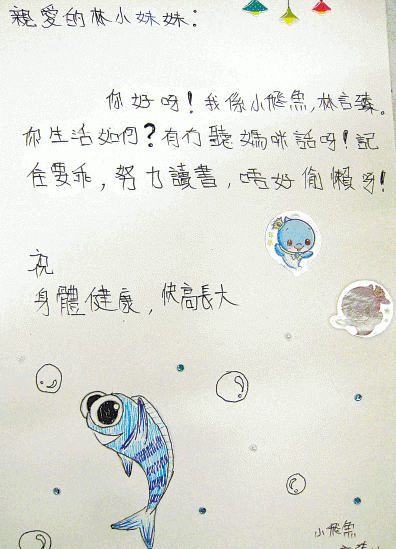 親愛的林小妹妹：
你好呀！我係小飛魚，林言臻。
你生活如何？有冇聽媽咪話呀！記
住要乖，努力讀書，唔好偷懶呀！
祝
身體健康，快高長大
小飛魚